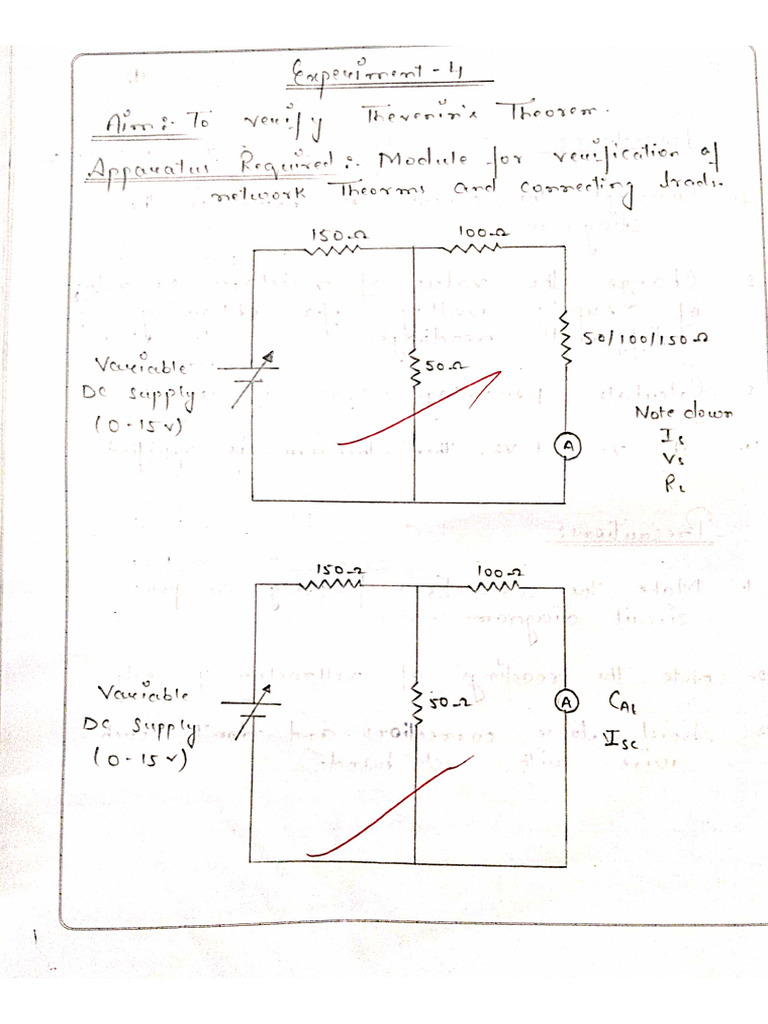 Experiment - 4
Aim :- To verify Thevenin's Theorem.
Apparatus Required :- Module for verification of
network Theorms and connecting leads.
150Ω
100Ω
50/100/150Ω
50Ω
Variable
DC Supply
(0-15v)
A
Note down
Vs
150Ω
100Ω
Variable
DC Supply
(0-15v)
50Ω
A
Isc